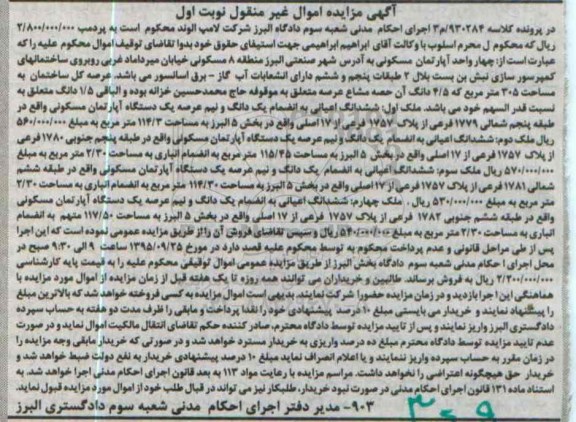 آگهی مزایده اموال غیر منقول نوبت اول
در پرونده کلاسه ۹۳۰۲۸۴/م۳ اجرای احکام مدنی شعبه سوم دادگاه البرز شرکت لامپ الوند محکوم است به پرداخت ۲/۸۰۰/۰۰۰/۰۰۰
ریال که محکوم ل محرم اسلوب با وکالت آقای ابراهیم ابراهیمی جهت استیفای حقوق خود بدوا تقاضای توقیف اموال محکوم علیه را که
عبارت است از: چهار واحد آپارتمان مسکونی به آدرس شهر صنعتی البرز منطقه ۸ مسکونی خیابان میرداماد غربی روبروی ساختمانهای
کمپرسور سازی نبش بن بست بلال ۲ طبقات پنجم و ششم دارای انشعابات آب گاز – برق آسانسور می باشد. عرصه کل ساختمان به
مساحت ۳۰۵ متر مربع که ۴/۵ دانگ آن حصه مشاع عرصه متعلق به موقوفه حاج محمدحسین خزانه بوده و الباقی ۱/۵ دانگ متعلق به
نسبت قدر السهم خود می باشد. ملک اول: ششدانگ اعیانی به انضمام یک دانگ و نیم عرصه یک دستگاه آپارتمان مسکونی واقع در
طبقه پنجم شمالی ۱۷۷۹ فرعی از پلاک ۱۷۵۷ فرعی از ۱۷ اصلی واقع در بخش ۵ البرز به مساحت ۱۱۴/۳ متر مربع به مبلغ ۵۶۰/۰۰۰/۰۰۰
ریال ملک دوم: ششدانگ اعیانی به انضمام یک دانگ و نیم عرصه یک دستگاه آپارتمان مسکونی واقع در طبقه پنجم جنوبی ۱۷۸۰ فرعی
از پلاک ۱۷۵۷ فرعی از ۱۷ اصلی واقع در بخش ۵ البرز به مساحت ۱۱۵/۴۵ متر مربع به انضمام انباری به مساحت ۲/۳۰ متر مربع به مبلغ
۵۷۰/۰۰۰/۰۰۰ ریال ملک سوم: ششدانگ اعیانی به انضمام یک دانگ و نیم عرصه یک دستگاه آپارتمان مسکونی واقع در طبقه ششم
شمالی ۱۷۸۱ فرعی از پلاک ۱۷۵۷ فرعی از ۱۷ اصلی واقع در بخش ۵ البرز به مساحت ۱۱۴/۳۰ متر مربع به انضمام انباری به مساحت ۲/۳۰
متر مربع به مبلغ ۵۳۰/۰۰۰/۰۰۰ ریال . ملک چهارم: ششدانگ اعیانی به انضمام یک دانگ و نیم عرصه یک دستگاه آپارتمان مسکونی
واقع در طبقه ششم جنوبی ۱۷۸۲ فرعی از پلاک ۱۷۵۷ فرعی از ۱۷ اصلی واقع در بخش ۵ البرز به مساحت ۱۱۷/۵۰ متهم به انضمام
انباری به مساحت ۲/۳۰ متر مربع به مبلغ ۵۴۰/۰۰۰/۰۰۰ ریال و سپس تقاضای فروش آن را از طریق مزایده عمومی نموده است که این اجرا
پس از طی مراحل قانونی و عدم پرداخت محکوم به توسط محکوم علیه قصد دارد در مورخ ۱۳۹۵/۰۹/۲۵ ساعت ۹ الی ۹:۳۰ صبح در
محل اجرای احکام مدنی شعبه سوم دادگاه بخش البرز از طریق مزایده عمومی اموال توقیفی محکوم علیه را به قیمت پایه کارشناسی
۲/۲۰۰/۰۰۰/۰۰۰ ریال به فروش برساند. طالبین و خریداران می توانند همه روزه تا یک هفته قبل از زمان مزایده از اموال مورد مزایده با
هماهنگی این اجرا بازدید و در زمان مزایده حضورا شرکت نمایند. بدیهی است اموال مزایده به کسی فروخته خواهد شد که بالاترین مبلغ
را پیشنهاد نمایند و خریدار می بایستی مبلغ ۱۰ درصد پیشنهادی خود را نقدا پرداخت و مابقی را ظرف مدت دو هفته به حساب سپرده
دادگستری البرز واریز نمایند و پس از تایید مزایده توسط دادگاه محترم، صادر کننده حکم تقاضای انتقال مالکیت اموال نماید و در صورت
عدم تایید مزایده توسط دادگاه محترم مبلغ ده درصد واریزی به خریدار مسترد خواهد شد و در صورتی که خریدار مابقی وجه مزایده را
در زمان مقرر به حساب سپرده واریز ننمایند و یا اعلام انصراف نماید مبلغ ۱۰ درصد پیشنهادی خریدار به نفع دولت ضبط خواهد شد و
خریدار حق هیچگونه اعتراضی را نخواهد داشت. مراسم مزایده با رعایت مواد ۱۱۳ به بعد قانون اجرای احکام مدنی اجرا خواهد شد. به
استناد ماده ۱۳۱ قانون اجرای احکام مدنی در صورت نبود خریدار، طلبکار نیز می تواند در قبال طلب خود از اموال مورد مزایده قبول نماید.
۹۰۳- مدیر دفتر اجرای احکام مدنی شعبه سوم دادگستری البرز